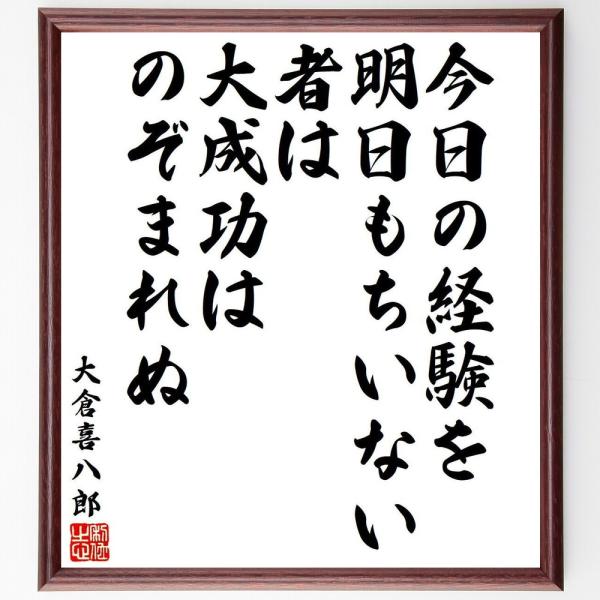 今日の経験を
明日もちいない
者は
大成功は
のぞまれぬ
大倉喜八郎